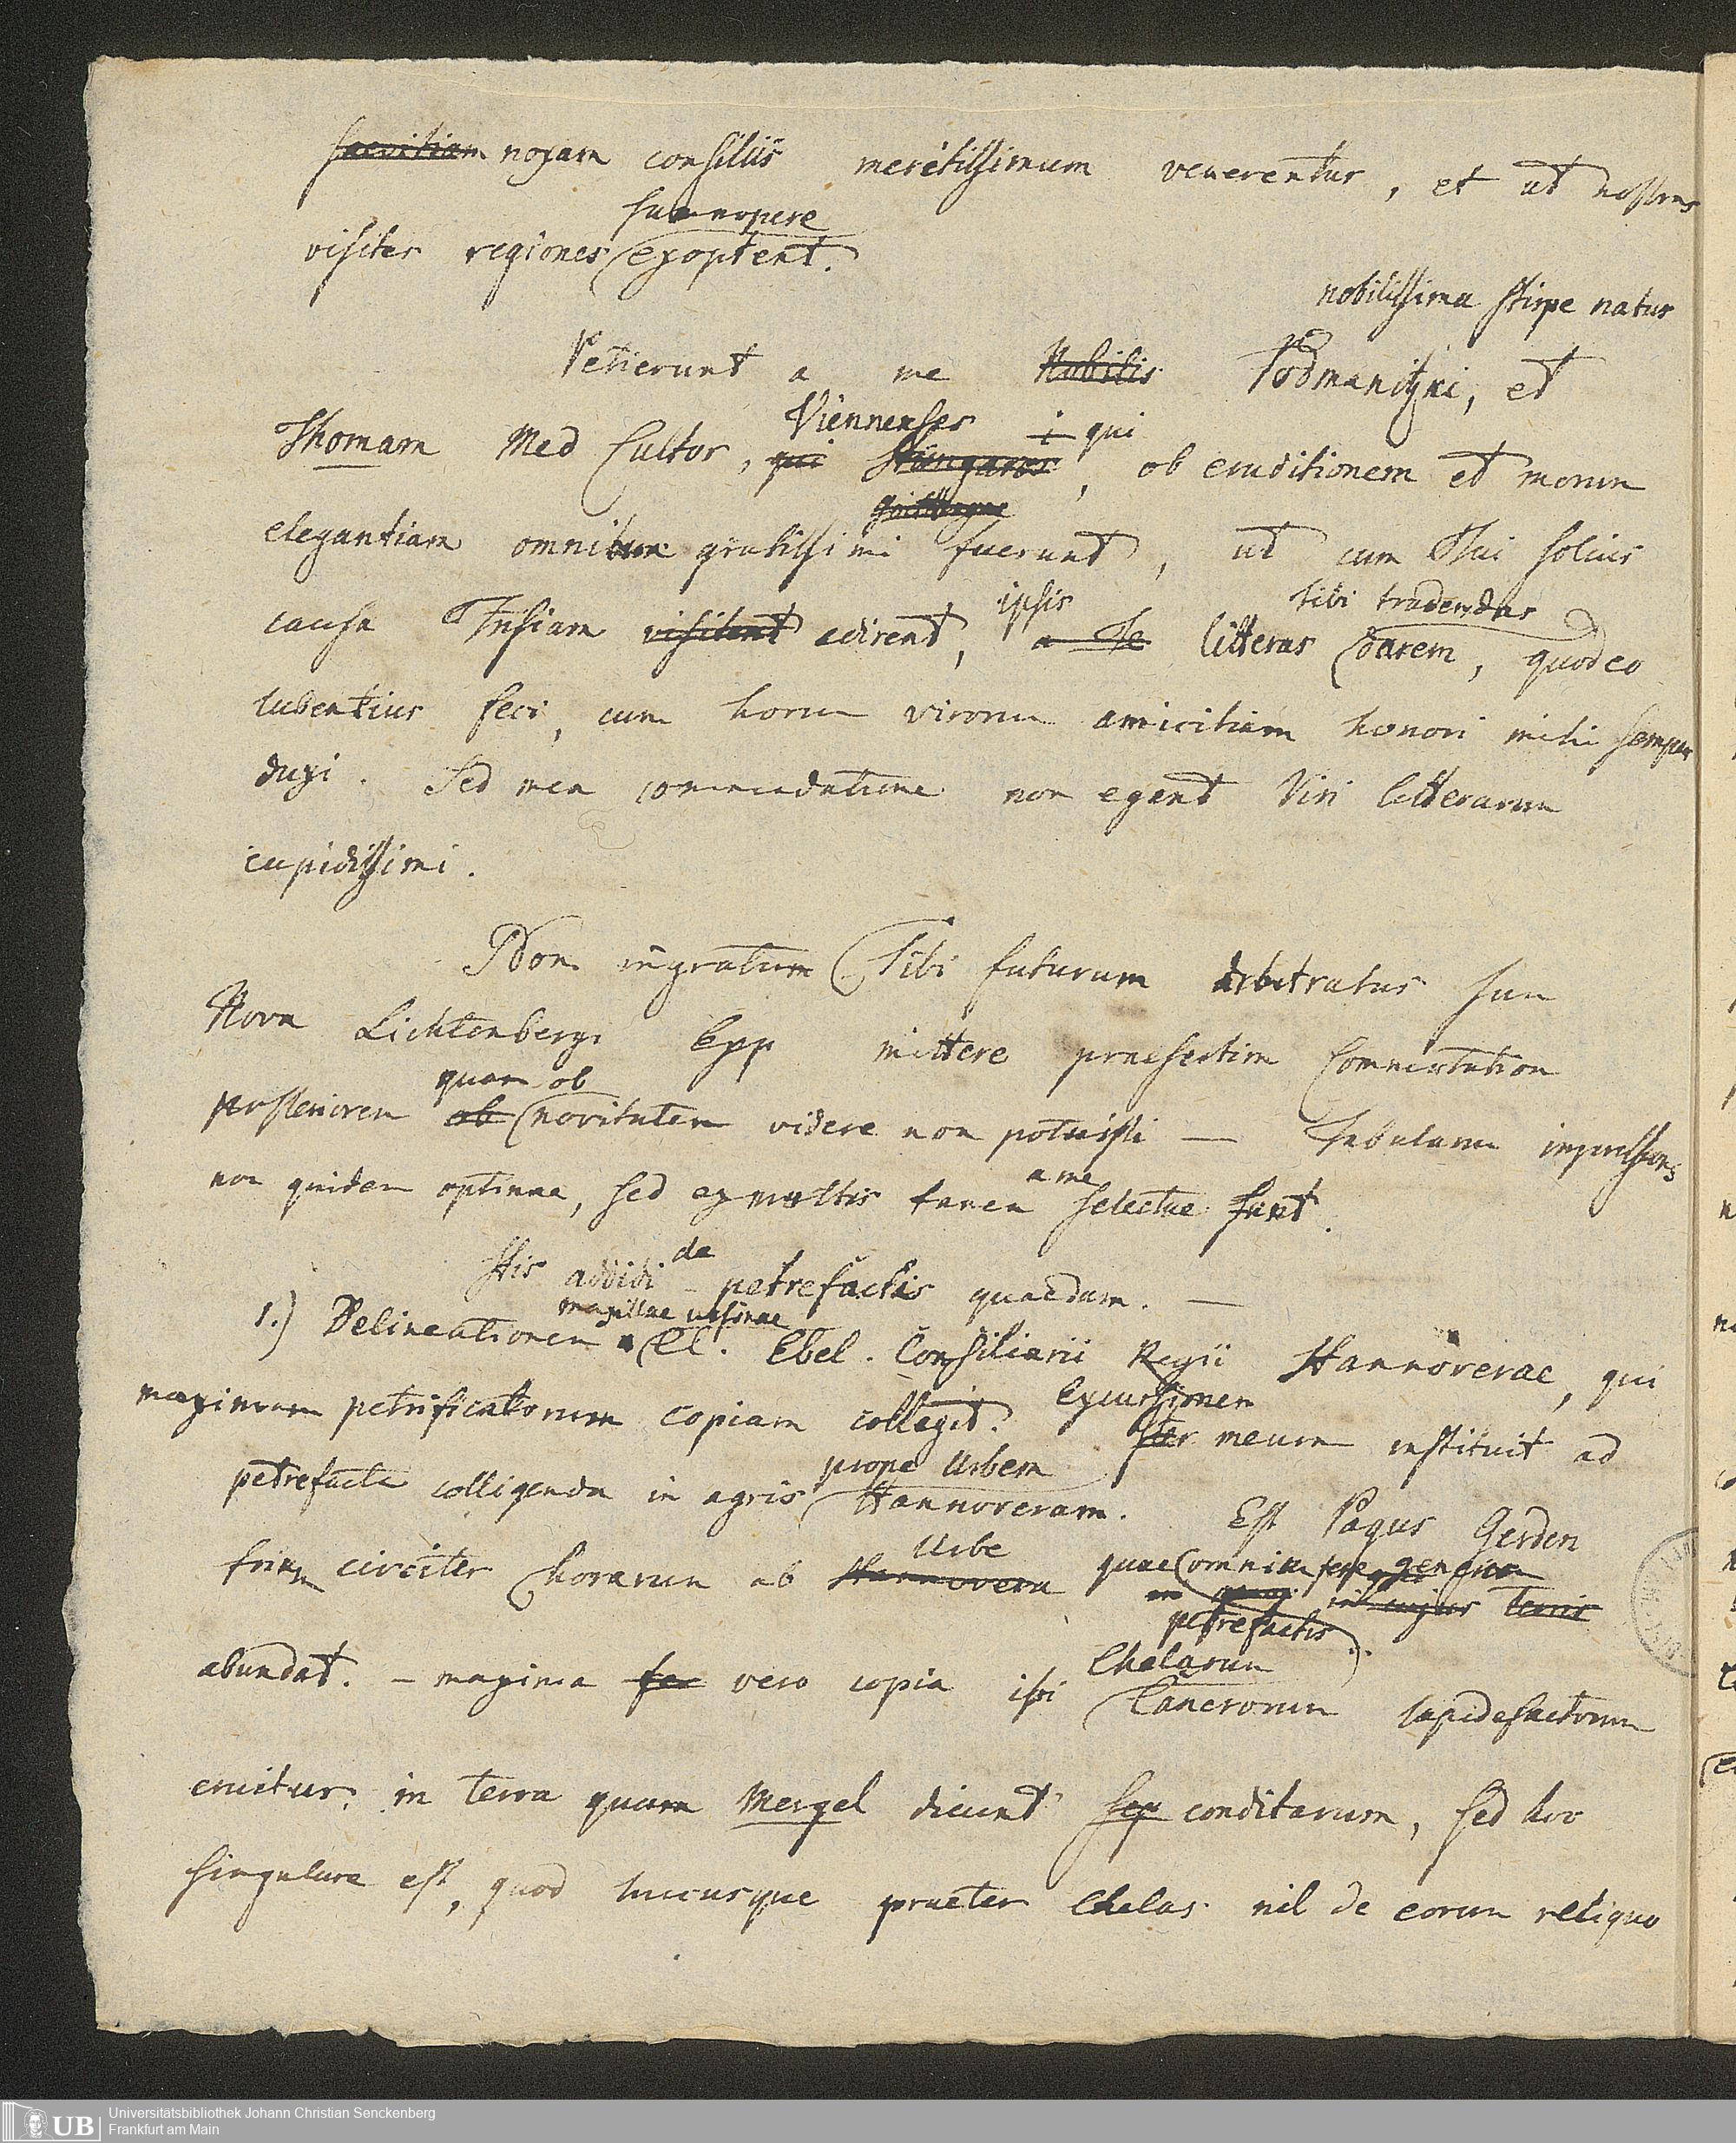 saevitiam noxam consiliis meritissimum venerentur, et ut nostras
summopere
visites regiones exoptent.
nobilissima stirpe natus
Petierunt a me Nobilis Podmanitzki, et
Viennenses i qui
Thomam Med Cultor, qui Hungaros, ob eruditionem et morum
elegantiam omnibus gratissimi fuerunt, ut cum Tui solius
ipsis tibi tradendas
causa Frisiam visitent adirent, a Te litteras darem, quod eo
lubentius feci, cum horum virorum amicitiam honori mihi semper
duxi. Sed mea commendatione non egent Viri litterarum
cupidissimi.
Non ingratum Tibi futurum arbitratus sum
Nova Lichtenbergi Exp mittere praesertim Commentation
quam ob
posteriorem ob novitatem videre non potuisti — Tabularum impressions
a me
non quidem optimae, sed ex multis tamen selectae sunt.
de
His addidi petrefactis quaedam. —
maxillae ursinae
1.) Delineationem Cl. Ebel. Consiliarii Regii Hannoverae, qui
Excursionem
maximam petrificatorum copiam collegit. Iter meum instituit ad
prope Urbem
petrefacta colligenda in agris Hannoveram. Est Pagus Gerden
Urbe quae omnium fere generum
trium circiter horarum ab Hannovera in cujus terris
petrefactis
Chelarum
abundat. – maxima fer vero copia ibi Cancrorum lapidefactorum
eruitur, in terra quam Mergel dicunt sep conditarum, sed hoc
singulare est, quod hucusque praeter Chelas nil de eorum reliquo
UB
Universitätsbibliothek Johann Christian Senckenberg
Frankfurt am Main